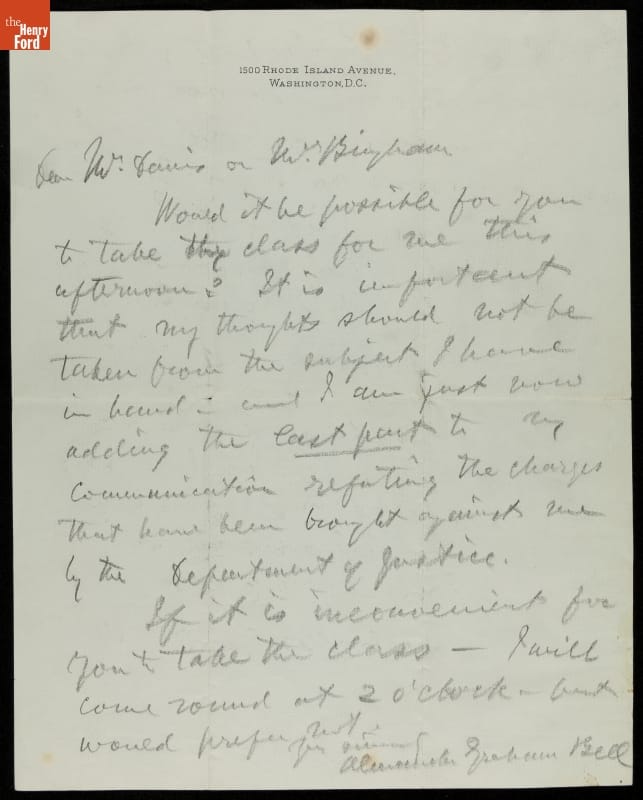 the
Henry
Ford
1500 RHODE ISLAND AVENUE,
WASHINGTON, D.C.
Dear Mr. Davis or Mr. Bingham
Would it be possible for you
to take class for me this
afternoon? It is important
that my thoughts should not be
taken from the subject I have
in hand - and I am just now
adding the last part to my
communication refuting the charges
that have been brought against me
by the Department of Justice.
If it is inconvenient for
you to take the class — I will
come round at 2 o'clock - but
would prefer not.
Alexander Graham Bell